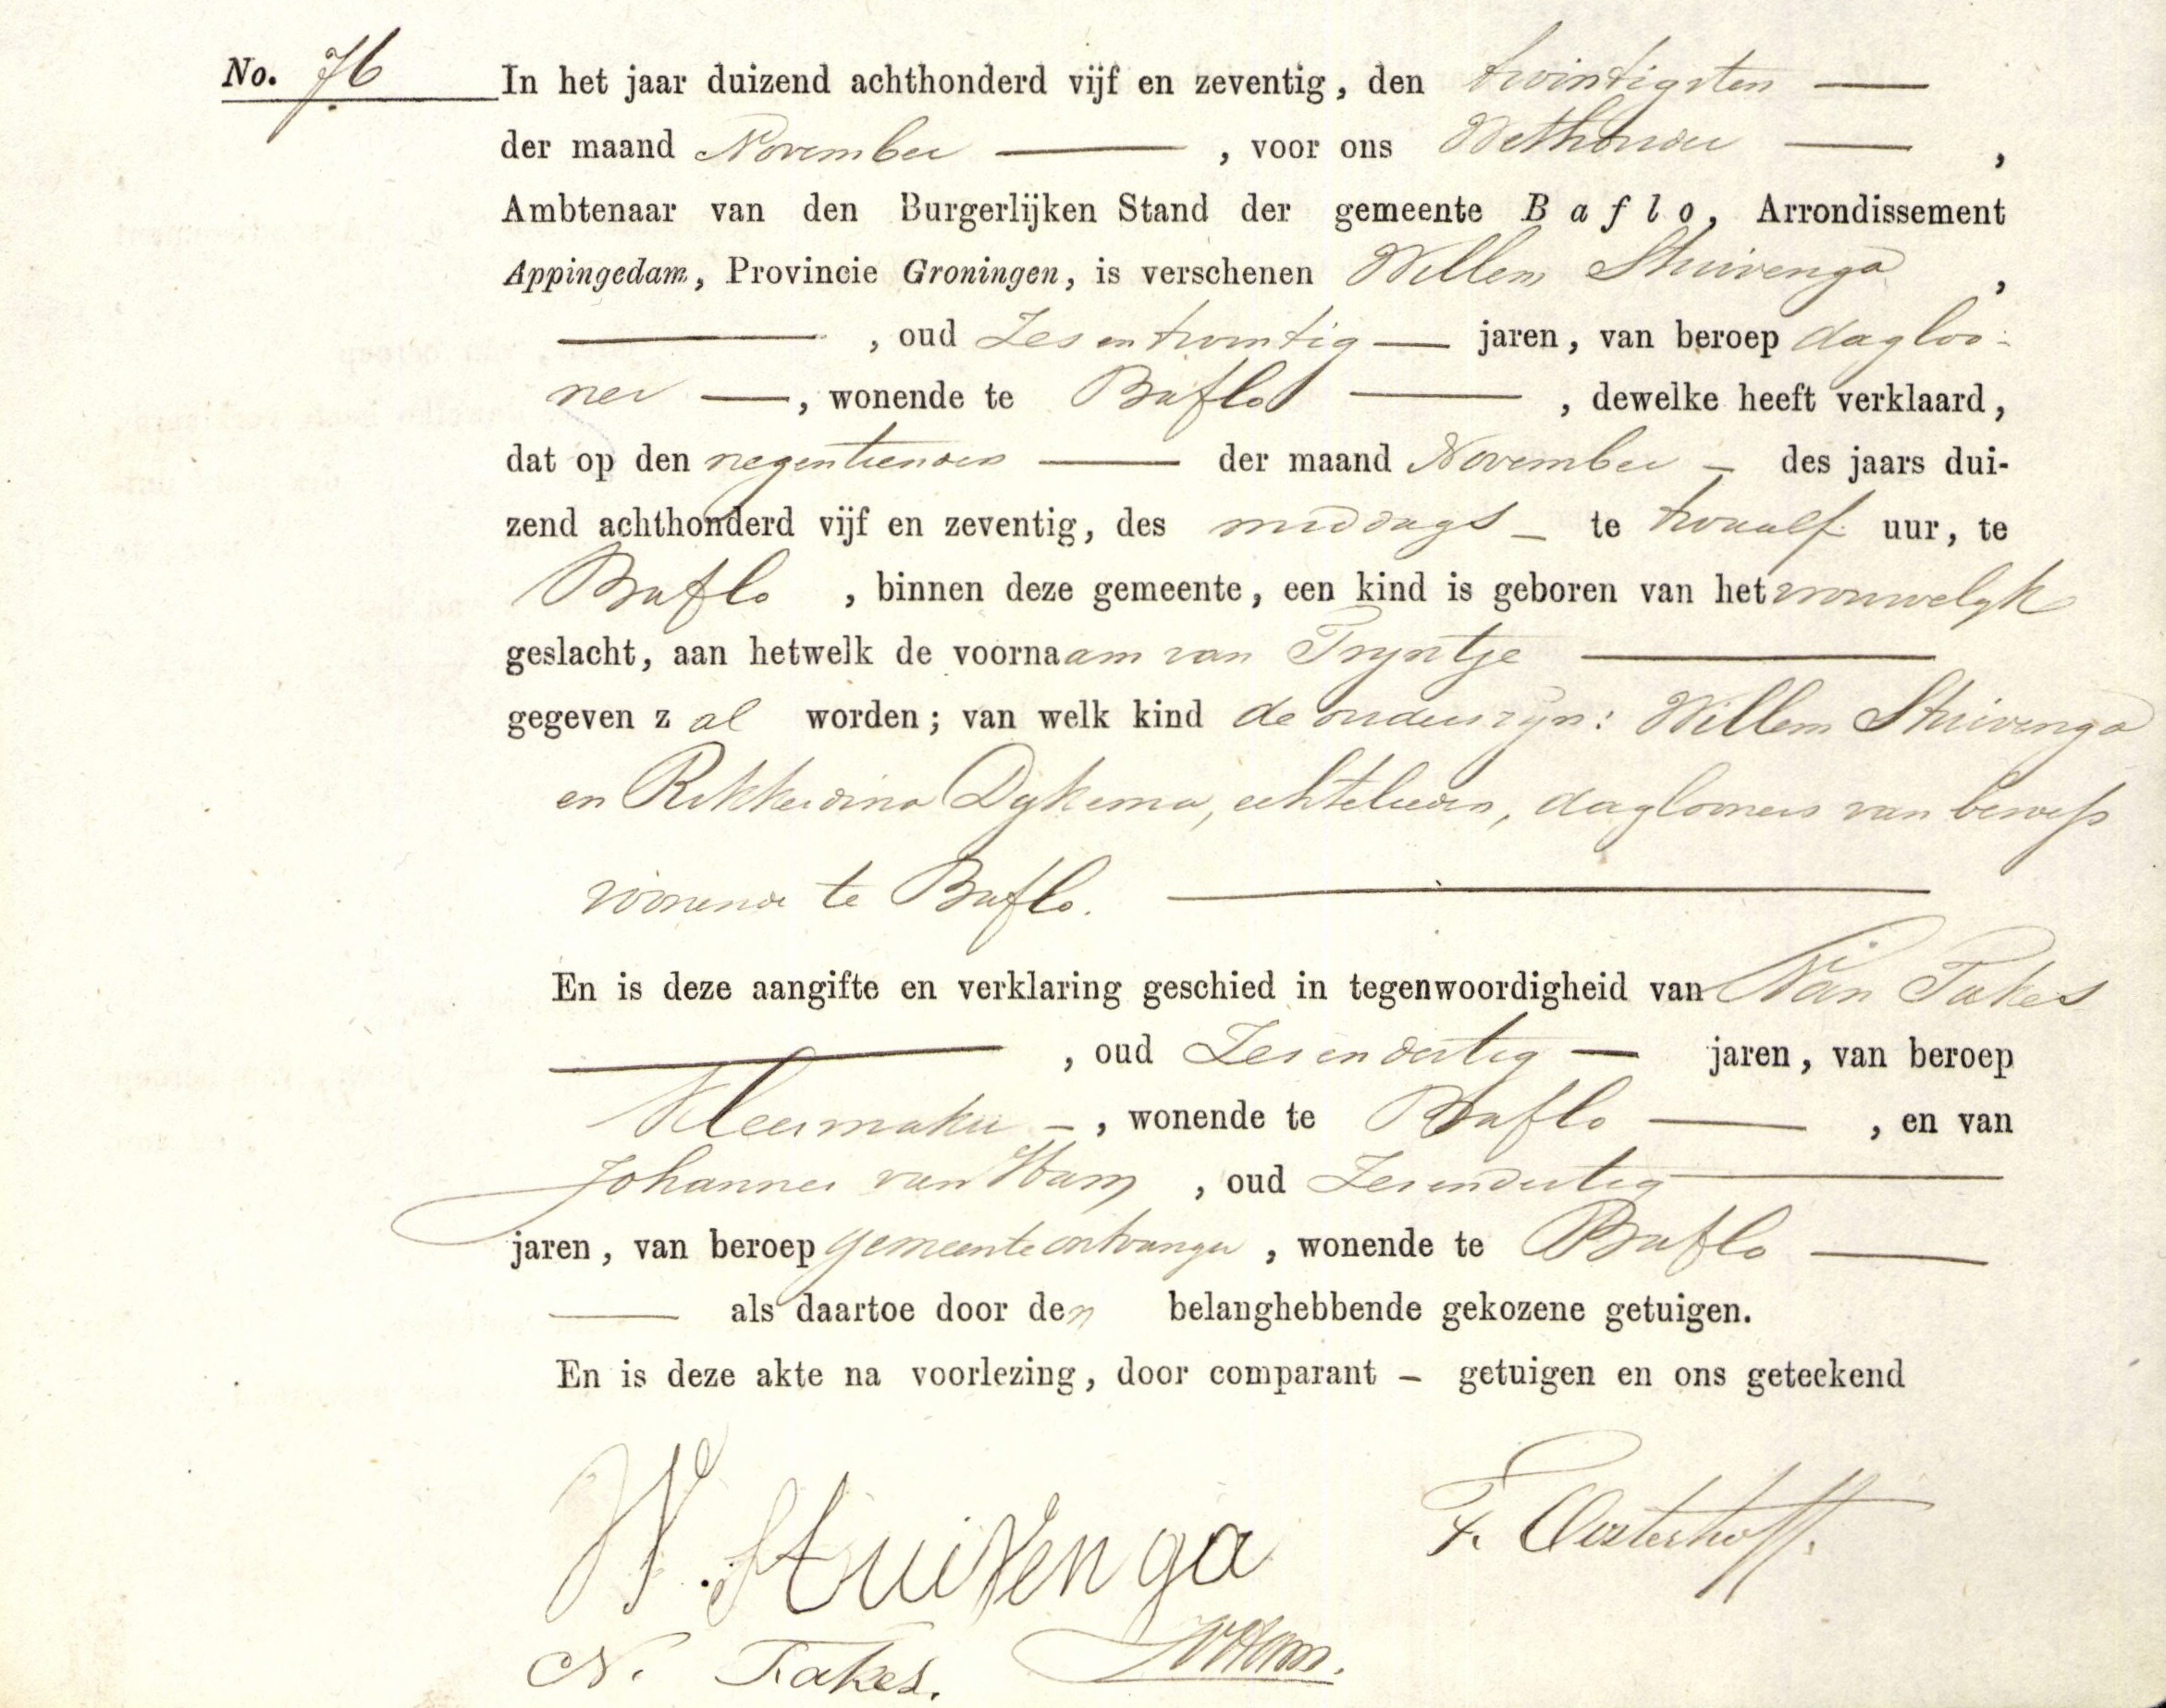 No. 76
In het jaar duizend achthonderd vijf en zeventig, den twintigsten —
der maand November — , voor ons Wethouder — ,
Ambtenaar van den Burgerlijken Stand der gemeente Baflo, Arrondissement
Appingedam, Provincie Groningen, is verschenen Willem Stuivenga ,
— , oud Zesentwintig — jaren, van beroep dagloo-
ner — , wonende te Baflo — , dewelke heeft verklaard,
dat op den negentienden — der maand November — des jaars dui-
zend achthonderd vijf en zeventig, des middags — te twaalf uur, te
Baflo , binnen deze gemeente, een kind is geboren van het vrouwelyk
geslacht, aan hetwelk de voornaam van Tryntje —
gegeven zal worden; van welk kind de ouders zyn: Willem Stuivenga
en Rikkerdina Dykema, echtelieden, dagloners van beroep
wonende te Baflo. —
En is deze aangifte en verklaring geschied in tegenwoordigheid van Nan Takes
— , oud Zesendertig — jaren, van beroep
Kleermaker — , wonende te Baflo — , en van
Johannes van Ham , oud Zesendertig —
jaren, van beroep gemeenteontvanger , wonende te Baflo —
— als daartoe door den belanghebbende gekozene getuigen.
En is deze akte na voorlezing, door comparant — getuigen en ons geteekend
W. Stuivenga F. Oosterhoff.
N. Takes. JvHam.